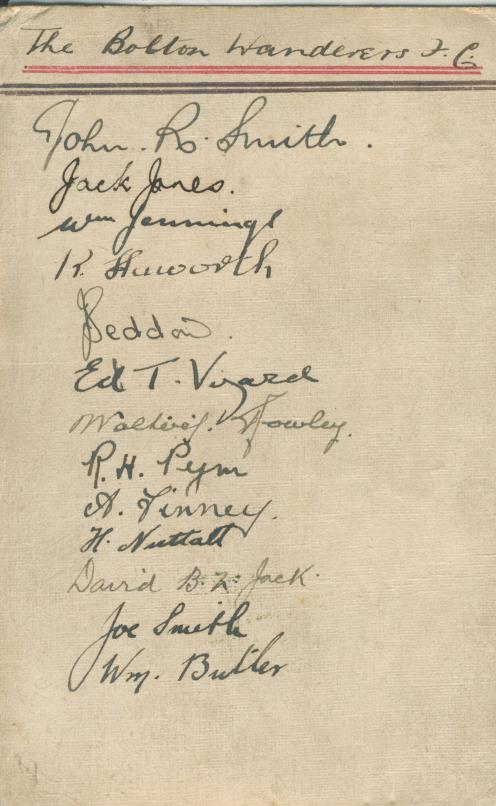 The Bolton Wanderers F.C.
John. R. Smith.
Jack Jones.
Wm Jennings
K. Howorth
Seddon.
Ed T. Vizard
Walter Rowley.
R. H. Pym
A. Finney.
H. Nuttall
David B. N. Jack.
Joe Smith
Wm. Butler